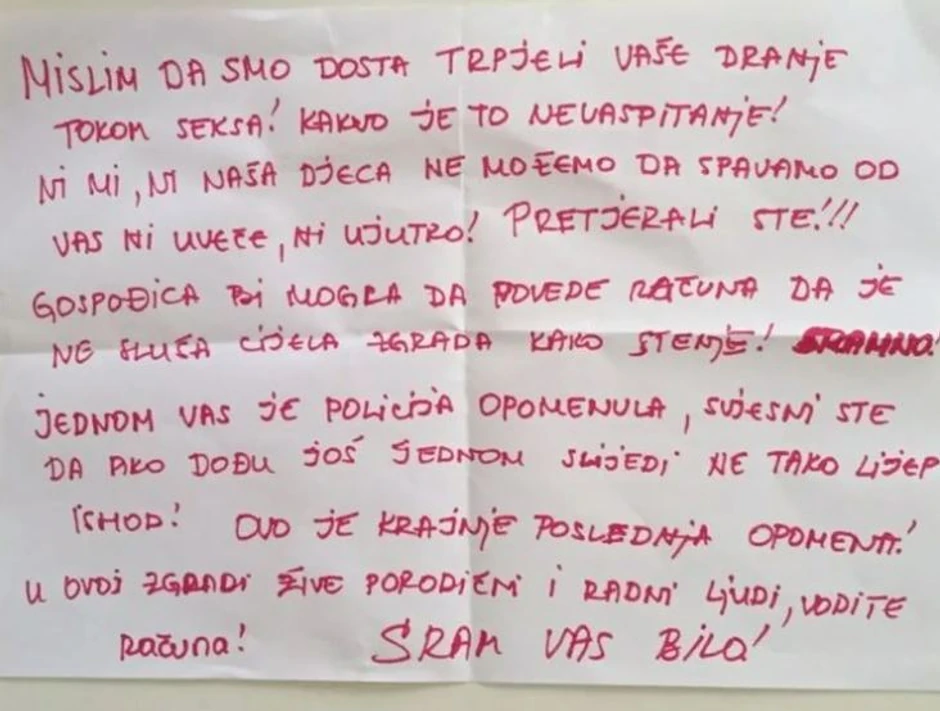 MISLIM DA SMO DOSTA TRPJELI VAŠE DRANJE
TOKOM SEKSA! KAKVO JE TO NEVASPITANJE!
NI MI, NI NAŠA DJECA NE MOŽEMO DA SPAVAMO OD
VAS NI UVEČE, NI UJUTRO! PRETJERALI STE!!!
GOSPOĐICA BI MOGLA DA POVEDE RAČUNA DA JE
NE SLUŠA CIJELA ZGRADA KAKO STENJE! SRAMNO!
JEDNOM VAS JE POLICIJA OPOMENULA, SVJESNI STE
DA AKO DOĐU JOŠ JEDNOM SLIJEDI NE TAKO LIJEP
ISHOD! OVO JE KRAJNJE POSLEDNJA OPOMENA!
U OVOJ ZGRADI ŽIVE PORODIČNI I RADNI LJUDI, VODITE
RAČUNA! SRAM VAS BILO!